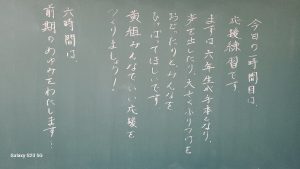 今日の一時間目は、
応援練習です
まずは六年生が手本となり、
声を出したり、大きくふりつけを
おどったりとみんなを
ひっぱってほしいです
黄組みんなでいい応援を
つくりましょう!
六時間は、
前期のあゆみをわたします!
Galaxy S23 5G